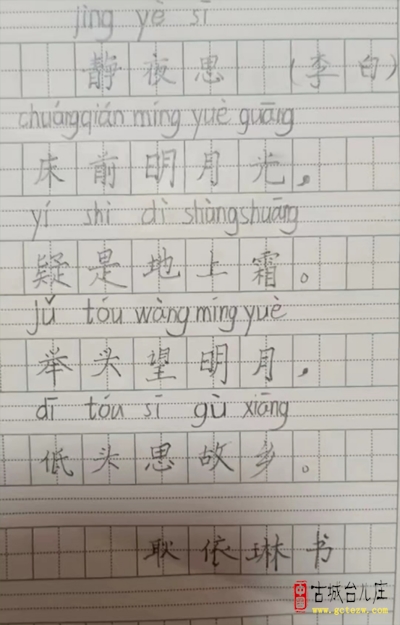 jìng yè sī
静夜思 (李白)
chuángqián míng yuè guāng
床前明月光,
yí shì dì shàngshuāng
疑是地上霜。
jǔ tóu wàng míng yuè
举头望明月,
dī tóu sī gù xiāng
低头思故乡。
耿依琳书
中国 古城台儿庄
www.gctezw.com